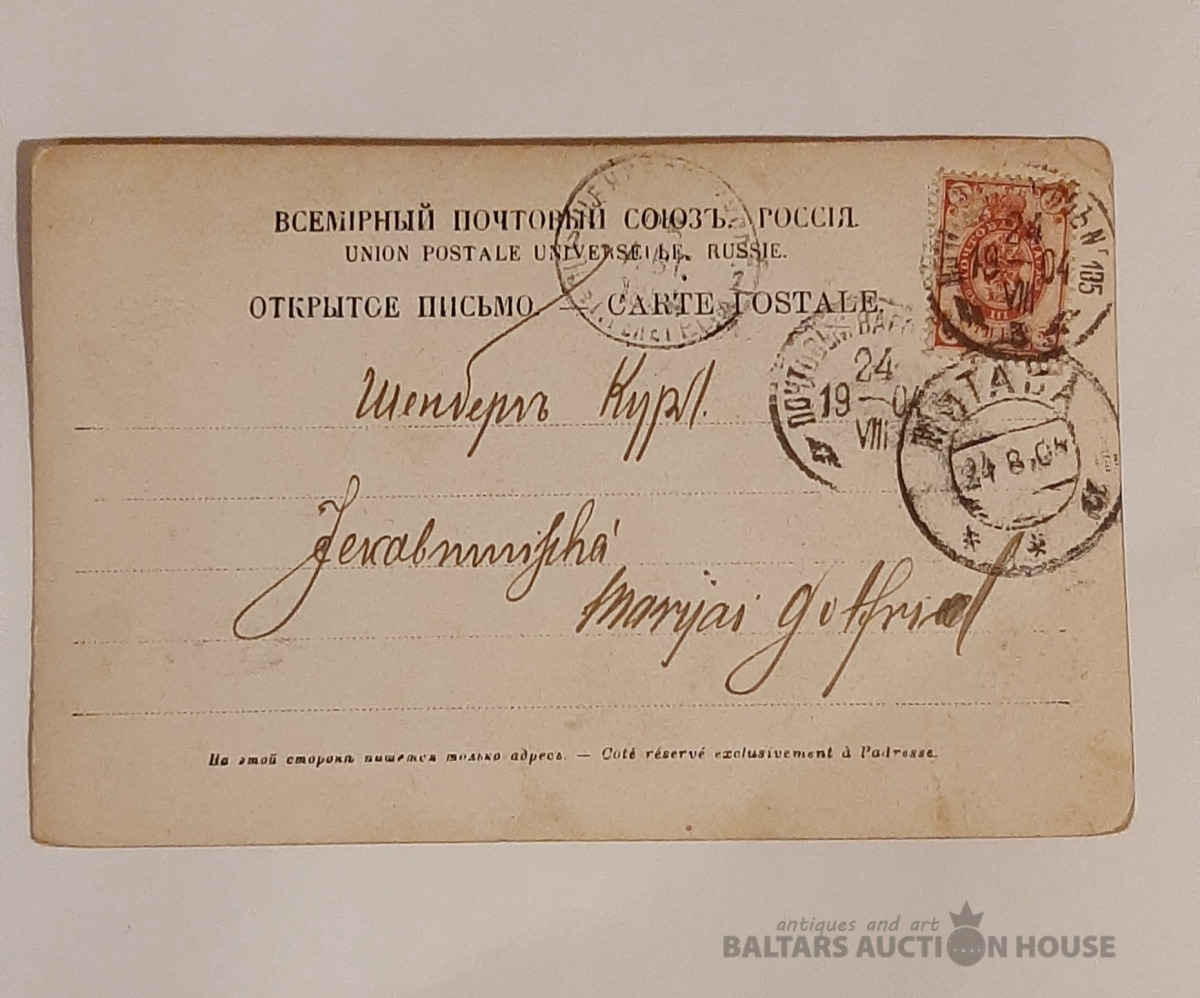 ВСЕМІРНЫЙ ПОЧТОВЫЙ СОЮЗЪ. РОССІЯ.
UNION POSTALE UNIVERSELLE. RUSSIE.
ОТКРЫТОЕ ПИСЬМО. — CARTE POSTALE.
185
24
19 — 04
VIII
ПОЧТОВЫЙ ВАГ
24
19 — 0
VIII
МИТАВА
24 8. 04
Шенбергъ Курл.
Marijai Gotfried
На этой сторонѣ пишется только адресъ. — Côté réservé exclusivement à l'adresse.
antiques and art
BALTARS AUCTION HOUSE